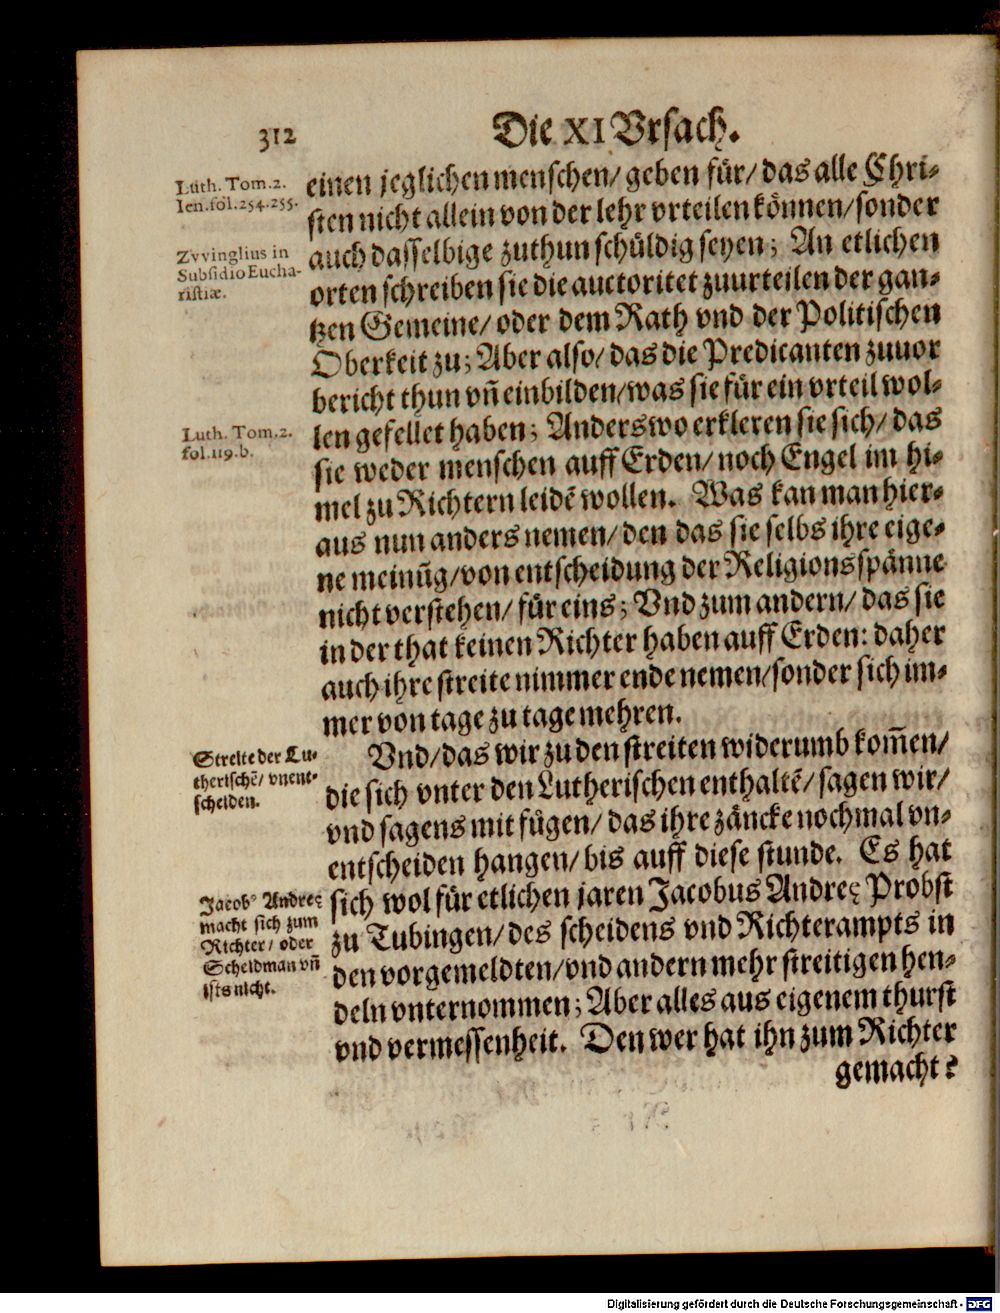 312
Die XI Vrsach.
Luth. Tom.2.
Ien.fol.254.255.
Zvvinglius in
Subsidio Eucha-
ristiæ.
Luth. Tom.2.
fol.119.b.
Streite der Lu-
therischē/ vnent-
scheiden.
Jacobꝰ Andreę
macht sich zum
Richter/ oder
Scheidman vñ
ists nicht.
einen jeglichen menschen/ geben für/ das alle Chri-
sten nicht allein von der lehr vrteilen können/ sonder
auch dasselbige zuthun schüldig seyen; An etlichen
orten schreiben sie die auctoritet zuurteilen der gan-
tzen Gemeine/ oder dem Rath vnd der Politischen
Oberkeit zu; Aber also/ das die Predicanten zuuor
bericht thun vñ einbilden/ was sie für ein vrteil wol-
len gefellet haben; Anderswo erkleren sie sich/ das
sie weder menschen auff Erden/ noch Engel im hi-
mel zu Richtern leidē wollen. Was kan man hier-
aus nun anders nemen/ den das sie selbs ihre eige-
ne meinūg/ von entscheidung der Religions spänne
nicht verstehen/ für eins; Vnd zum andern/ das sie
in der that keinen Richter haben auff Erden: daher
auch ihre streite nimmer ende nemen/ sonder sich im-
mer von tage zu tage mehren.
Vnd/ das wir zu den streiten widerumb kom̄en/
die sich vnter den Lutherischen enthaltē/ sagen wir/
vnd sagens mit fůgen/ das ihre zäncke nochmal vn-
entscheiden hangen/ bis auff diese stunde. Es hat
sich wol für etlichen jaren Jacobus Andreę Probst
zu Tubingen/ des scheidens vnd Richterampts in
den vorgemeldten/ vnd andern mehr streitigen hen-
deln vnternommen; Aber alles aus eigenem thurst
vnd vermessenheit. Den wer hat ihn zum Richter
gemacht?
Digitalisierung gefördert durch die Deutsche Forschungsgemeinschaft - DFG